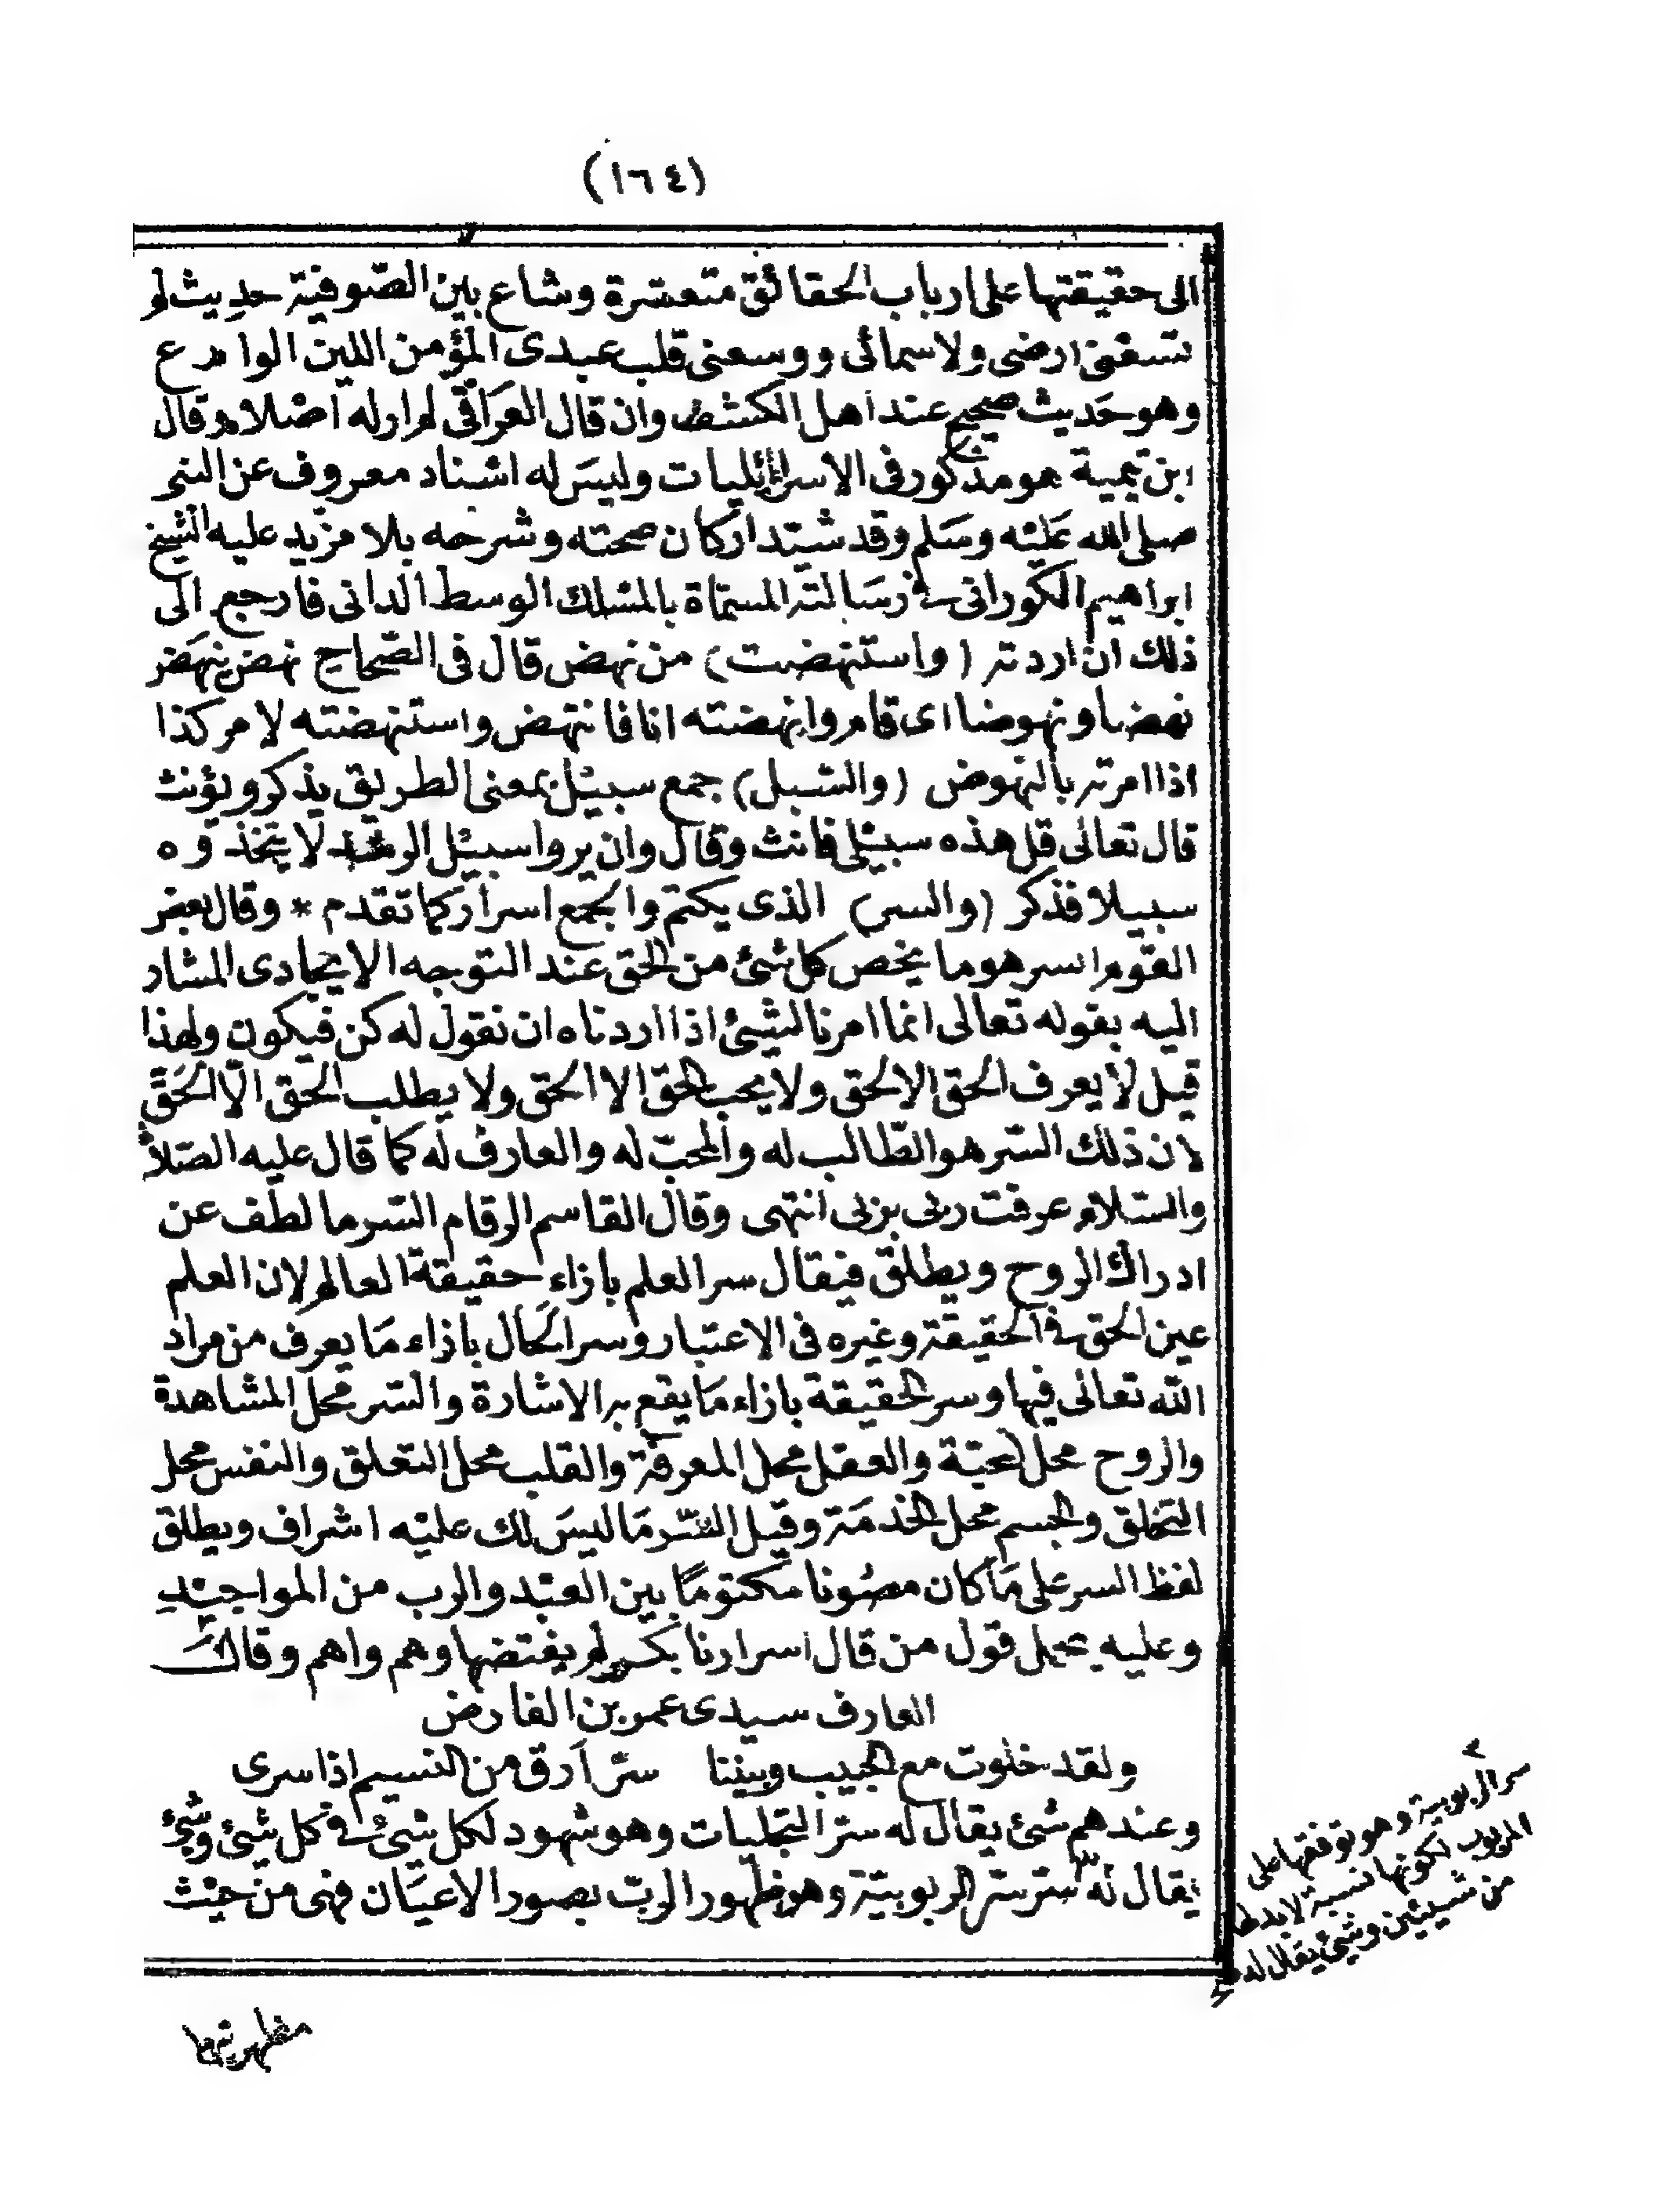 (١٦٤)
الى حقيقتها على ارباب الحقائق متعسرة وشاع بين الصّوفية حديث لم
تسعنى ارضى ولا سمائى ووسعنى قلب عبدى المؤمن اللين الوادع
وهو حَديث صحيح عند اهل الكشف وان قال العَراقى لم ار له اصْلا وقال
ابن تيمية هو مذكور فى الاسرائيليات وليسَ له اسْناد معروف عن النبى
صلى الله عَليْه وسَلم وقد شيّد اركان صحته وشرحه بلا مزيد عليه الشيخ
ابراهيم الكورانى فى رسَالته المسمّاة بالمسْلك الوسط الدانى فارجع الى
ذلك ان اردته (واستنهضت) من نهض قال فى الصّحاح نهض ينهَض
نهضا ونهوضا اى قام وانهضته انا فانتهض واستنهضته لامر كذا
اذا امرته بالنهوض (والسّبل) جمع سبيْل بمعنى الطريق يذكر ويؤنث
قال تعالى قل هذه سبيْلى فانث وقال وان يروا سبيْل الرشد لا يتخذوه
سبيلا فذكر (والسر) الذى يكتم والجمع اسرار كما تقدم * وقال بعض
القوم السر هو ما يخص كل شئ من الحق عند التوجه الايجادى المشار
اليه بقوله تعالى انما امرنا لشيئ اذا اردناه ان نقول له كن فيكون ولهذا
قيل لا يعرف الحق الا الحق ولا يحب الحق الا الحق ولا يطلب الحق الّا الحَقّ
لان ذلك السّر هو الطّالب له والمحبّ له والعارف له كما قال عليه الصّلاة
والسّلام عرفت ربى بربى انتهى وقال القاسم الرقام السّر ما لطف عن
ادراك الروح ويطلق فيقال سر العلم بازاء حقيقة العالم لان العلم
عين الحق فى الحقيقة وغيره فى الاعتبار وسر الحَال بازاء مَا يعرف من مراد
الله تعالى فيها وسر الحقيقة بازاء مَا يقع به الاشارة والسّر محل المشاهدة
والروح محل المحبّة والعقل محل المعرفة والقلب محل التعلق والنفس محل
التخلق والجسم محل الخدمَة وقيل السّر مَا ليسَ لك عليْه اشراف ويطلق
لفظ السر على مَا كان مصُونا مكتومًا بين العبْد والرب من المواجيْدِ
وعليه يحمل قول من قال اسرارنا بكر لم يفتضها وهم واهم وقال
العارف سيدى عمر بن الفارض
ولقد خلوت مع الحبيب وبيننا سرّ اَرق من النسيم اذا سرى
وعندهم شئ يقال له سرّ التجليات وهو شهود لكل شيئ فى كل شيئ وشيئ
يقال له سر سرّ الربوبيّة وهو ظهور الربّ بصور الاعيَان فهى من حيْث
سر الربوبية وهو توقفها على
المربوب لكونها نسبة لا بد لها
من شيئين وشيئ يقال له
مظهريتها